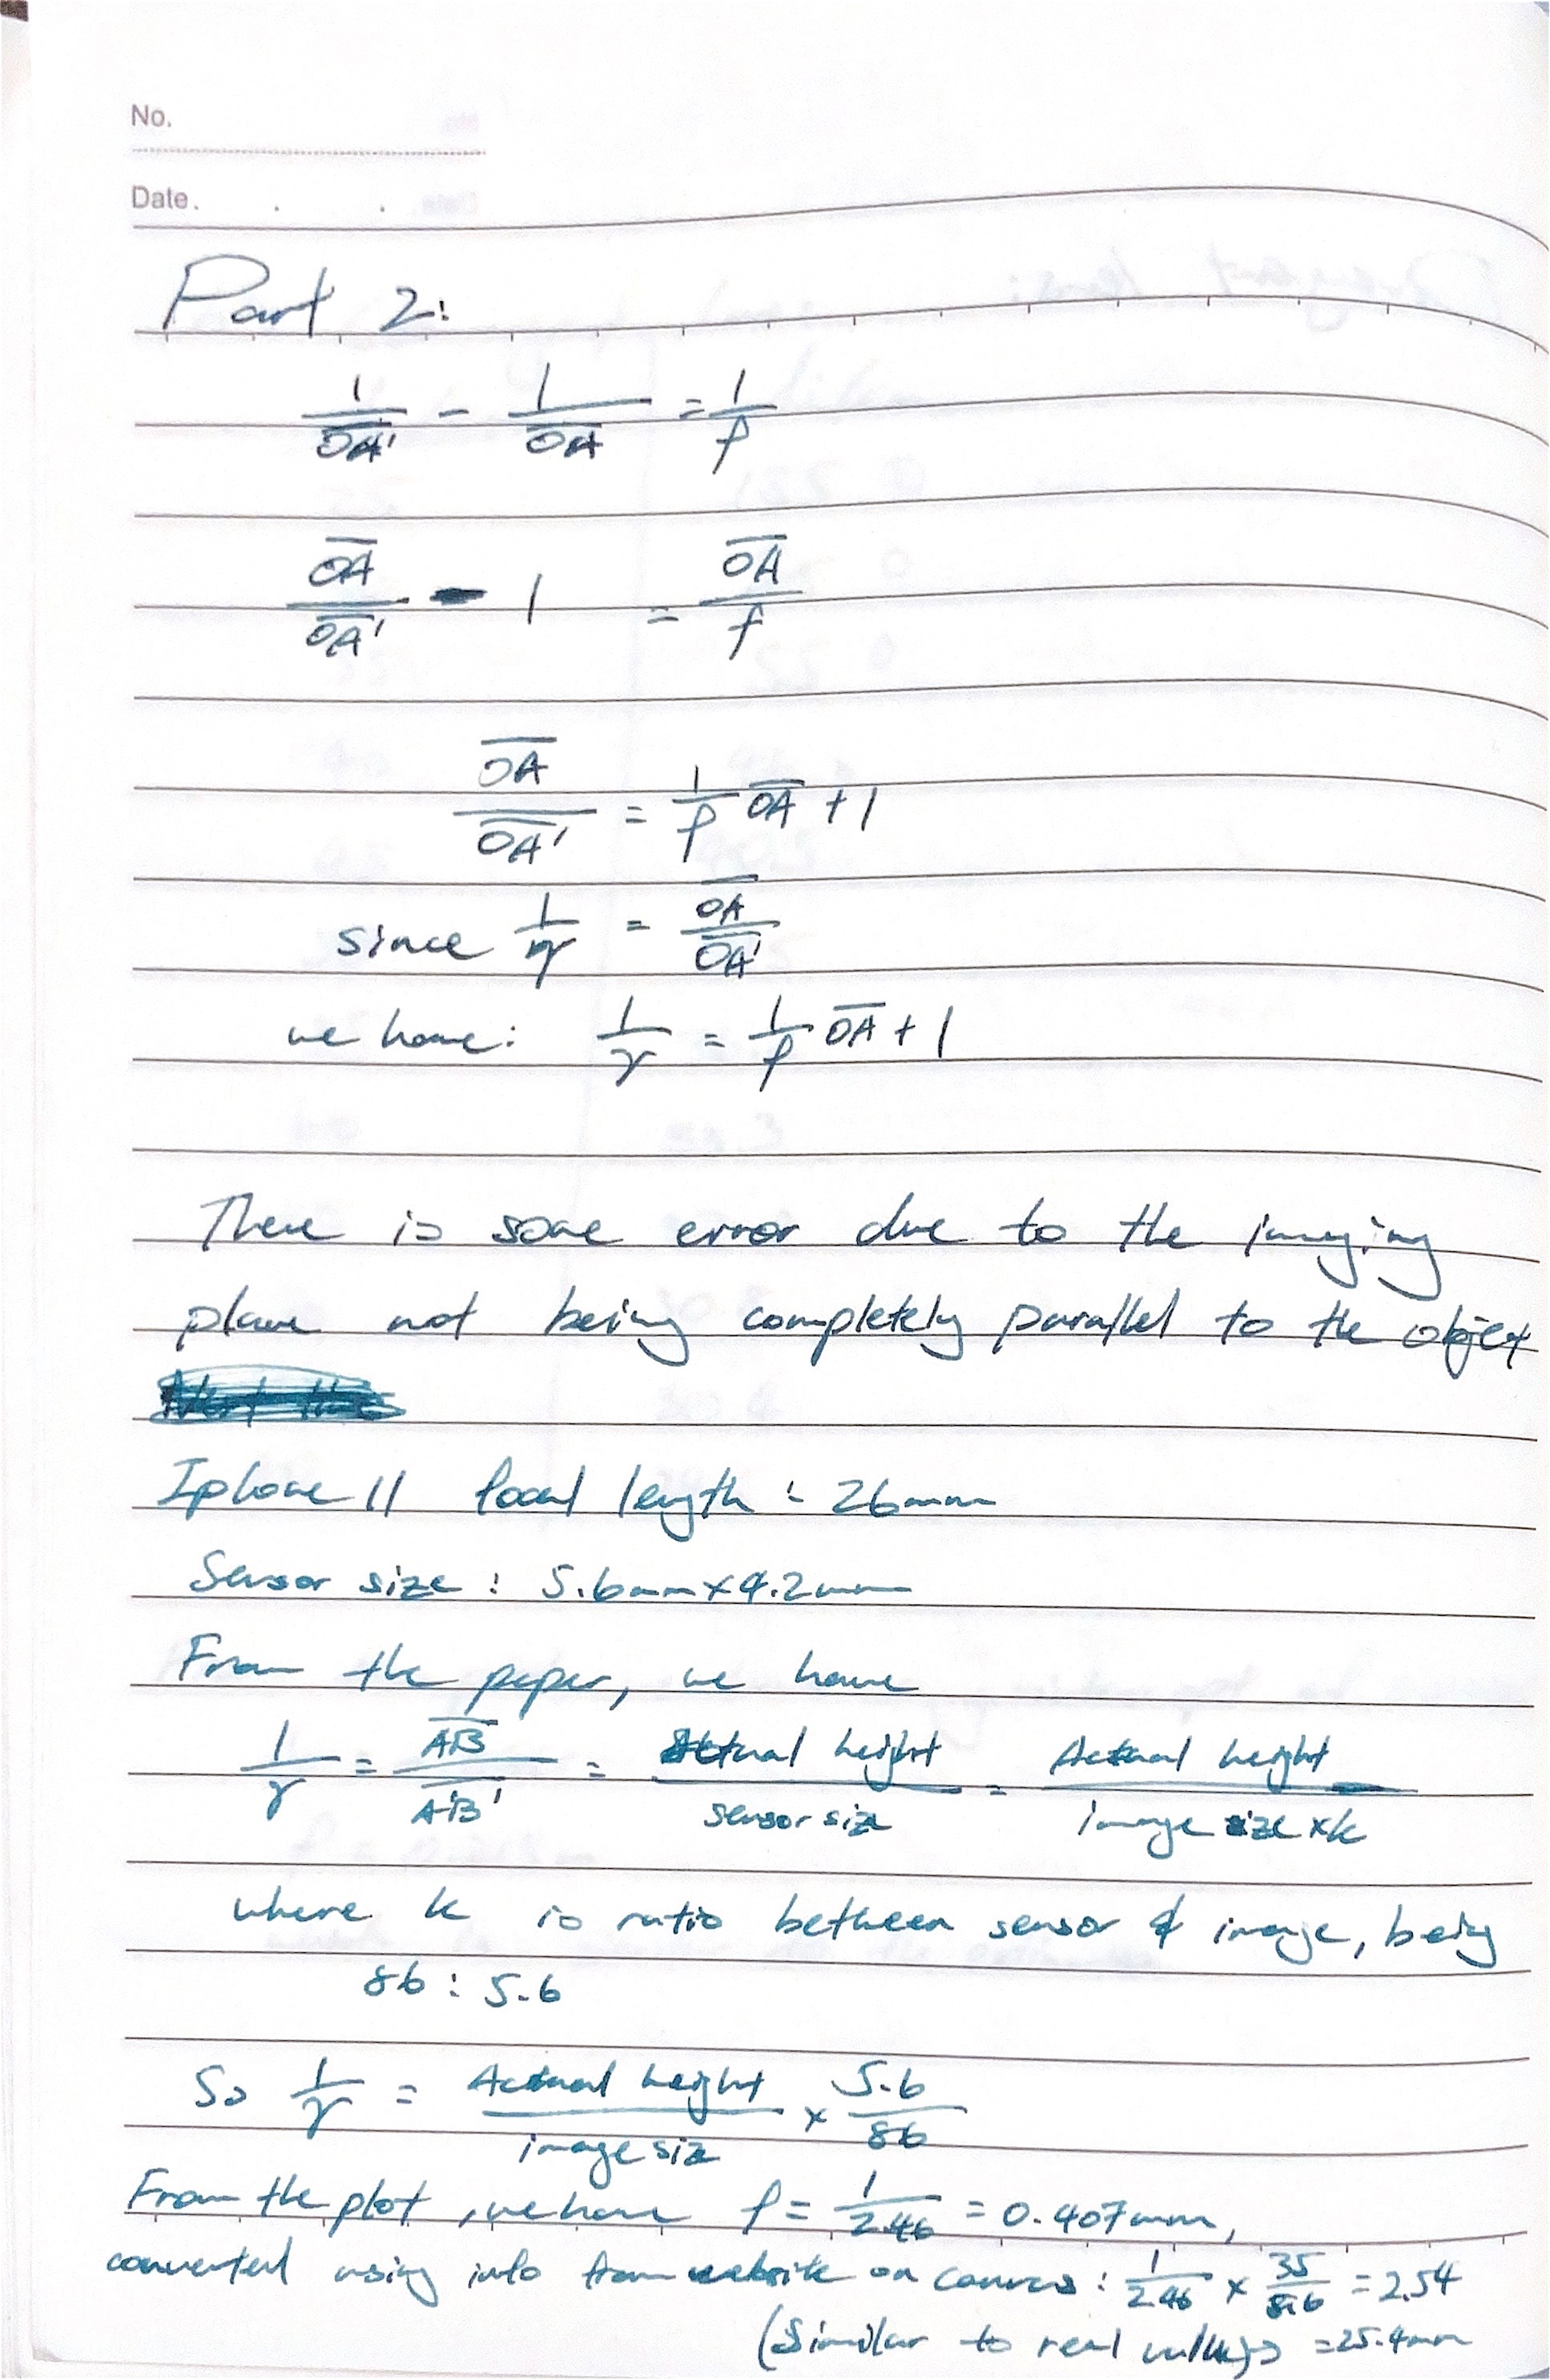 No.
Date. . .
Part 2:
1/OA' - 1/OA = 1/f
OA/OA' - 1 = OA/f
OA/OA' = 1/f OA + 1
since 1/γ = OA/OA'
we have: 1/γ = 1/f OA + 1
There is some error due to the imaging
plane not being completely parallel to the object
Iphone 11 focal length : 26mm
Sensor size : 5.6mm×4.2mm
From the paper, we have
1/γ = AB/A'B' = Actual height/sensor size = Actual height/image size ×k
where k is ratio between sensor & image, being
86 : 5.6
So 1/γ = Actual height/image size × 5.6/86
From the plot, we have f = 1/2.46 = 0.407mm,
converted using info from website on canvas : 1/2.46 × 35/5.6 = 2.54
(Similar to real value) = 25.4mm